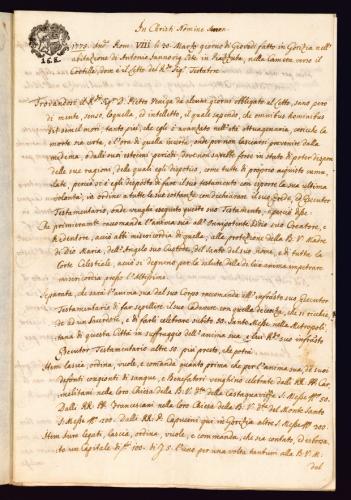 In Christi Nomine Amen
1775. Ind.e Rom. VIII. li 30 Marzo giorno di Giovedì fatto in Gorizia nell'
abitazione di Antonio in Piazzuta, nella camera verso il
Cortille, dove è il Letto del R.do Sig.r Testatore
15 K.
Trovandosi il R.do Sig.r D. Pietro da alcuni giorni obligato al Letto, sano però
di mente, senso, loquella, ed intelletto, il quale sapendo, che omnibus hominibus
sit semel mori, tanto più, che egli è avanzato nell'età ottuagenaria, cosichè la
morte sia certa, e l'ora di quella incerta, onde per non lasciarsi prevenire dalla
medema, e dalli suoi pericoli, dove non sarebbe forse in stato di poter dispon-
delle sue ragioni, delle quali egli dispotico, come tutte di proprio acquisto
late, perciò si è egli disposto di fare il suo testamento con esporre la sua ultima
volontà, in ordine a tutte le sue sostanze con dichiarare il suo Erede, ed Esecutor
Testamentario, onde venghi eseguito questo suo Testamento, e perciò disse
Che primieramente raccomanda l'anima sua all' Onnipotente Iddio suo Creatore, e
Redentore, acciò alli misericordia di quella, alla protezione della B. V. Madre
di Dio Maria, dell'Angelo suo Custode, del Santo del suo Nome, e di tutta la
Corte Celestiale, acciò si degnino per la salute della di lui anima impetrare
misericordia presso l'Altissimo.
Separata, che sarà l'anima sua dal suo Corpo raccomanda all'infrascritto suo Esecutor
Testamentario di far sepellire il suo Cadavere con quella decenza, che si richie-
de ad un Sacerdote, e di farli celebrare subito 50 Sante Messe nella Metropoli-
tana di questa Città in suffraggio dell' anima sua, e lui R.do suo infrascritto
Esecutor Testamentario altre 50 più presto, che potrà
Item lascia, ordina, vuole, e comanda quanto prima che per l'anima sua, de suoi
defonti congionti di sangue, e Benefatori venghino celebrate dalli RR. PP. Car-
melitani nella loro Chiesa della B. V. della Castagnavizza S. Messe N.o 50.
Dalli RR. PP. Francescani nella loro Chiesa della B. V. del Monte Santo
S. Messe N.o 100. dalli RR. PP. Capucini qui in Gorizia altre S. Messe N.o 300.
Item lascia, ordina, vuole, e commanda, che sia contato, ed esborsa-
to un Capitale di f.ni 100. di per una volta tantum alla B. V. M.
del